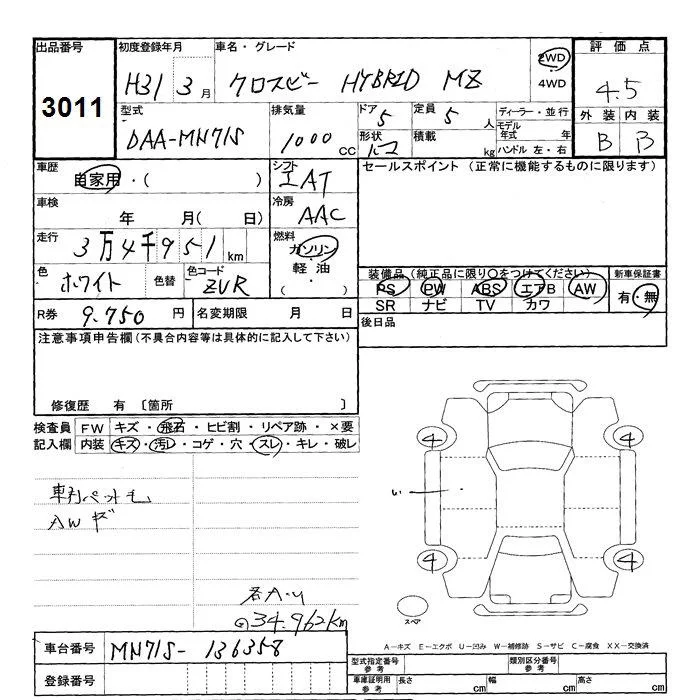 出品番号 初度登録年月 車名・グレード 評価点
3011 H31 3月 クロスビー HYBRID MZ 2WD 4WD 4.5
型式 排気量 ドア 定員 ディーラー・並行 外装 内装
DAA-MN71S 1000cc 5 5人 モデル年式 年 B B
形状 積載 kg ハンドル 左・右
車歴 シフト セールスポイント (正常に機能するものに限ります)
自家用・( ) AT
車検 冷房
年 月( 日) AAC
走行 燃料
3万4千951km ガソリン・軽油 ( )
色 色替 色コード 装備品(純正品に限り○をつけてください) 新車保証書
ホワイト ZVR PS PW ABS エアB AW 有・無
SR ナビ TV カワ
R券 9.750円 名変期限 月 日 後日品
注意事項申告欄(不具合内容等は具体的に記入して下さい)
修復歴 有 〔箇所 〕
検査員 FW キズ・飛石・ヒビ割・リペア跡・×要
記入欄 内装 キズ・汚レ・コゲ・穴・スレ・キレ・破レ
4 4
AWキズ
4 4
34.962km
スペア
車台番号 MN71S-136358
A-キズ E-エクボ U-凹み W-補修跡 S-サビ C-腐食 XX-交換済
登録番号
型式指定番号 参考 類別区分番号 参考
車庫証明用 参考 長さ cm 幅 cm 高さ cm